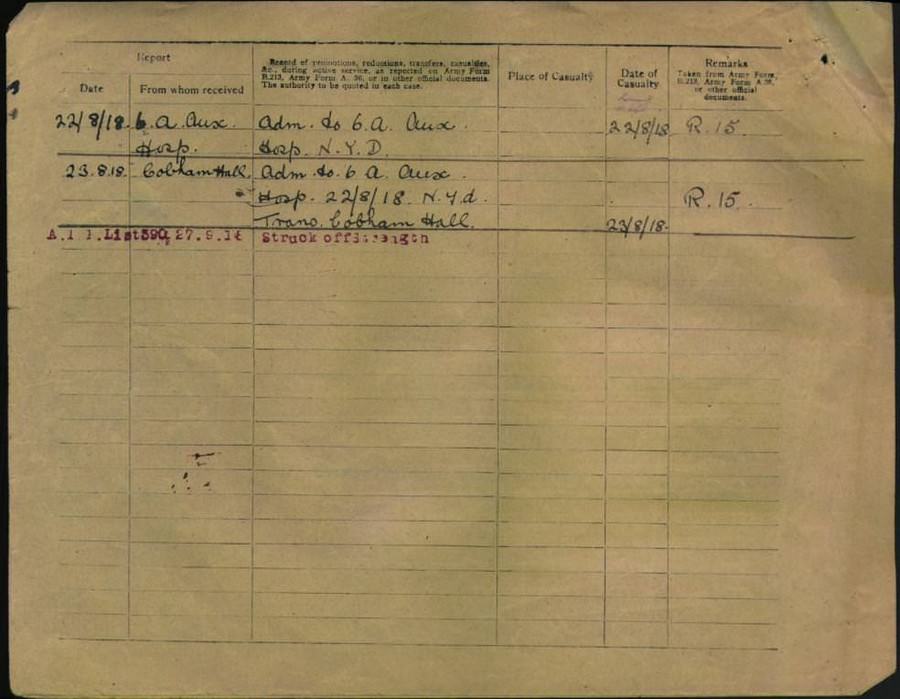 Report
Record of promotions, reductions, transfers, casualties,
&c., during active service, as reported on Army Form
B.213, Army Form A. 36, or in other official documents.
The authority to be quoted in each case.
Place of Casualty
Date of
Casualty
Remarks
Taken from Army Form
B.213, Army Form A.36,
or other official
documents.
Date
From whom received
22/8/18. 6. A. Aux. Adm. to 6. A. Aux. 22/8/18 R.15.
Hosp. Hosp. N.Y.D.
23.8.18. Cobham Hall. Adm. to. 6 A. Aux.
Hosp. 22/8/18. N.Y.d. R.15.
Trans. Cobham Hall. 23/8/18.
List 390, 27.9.18 Struck off Strength